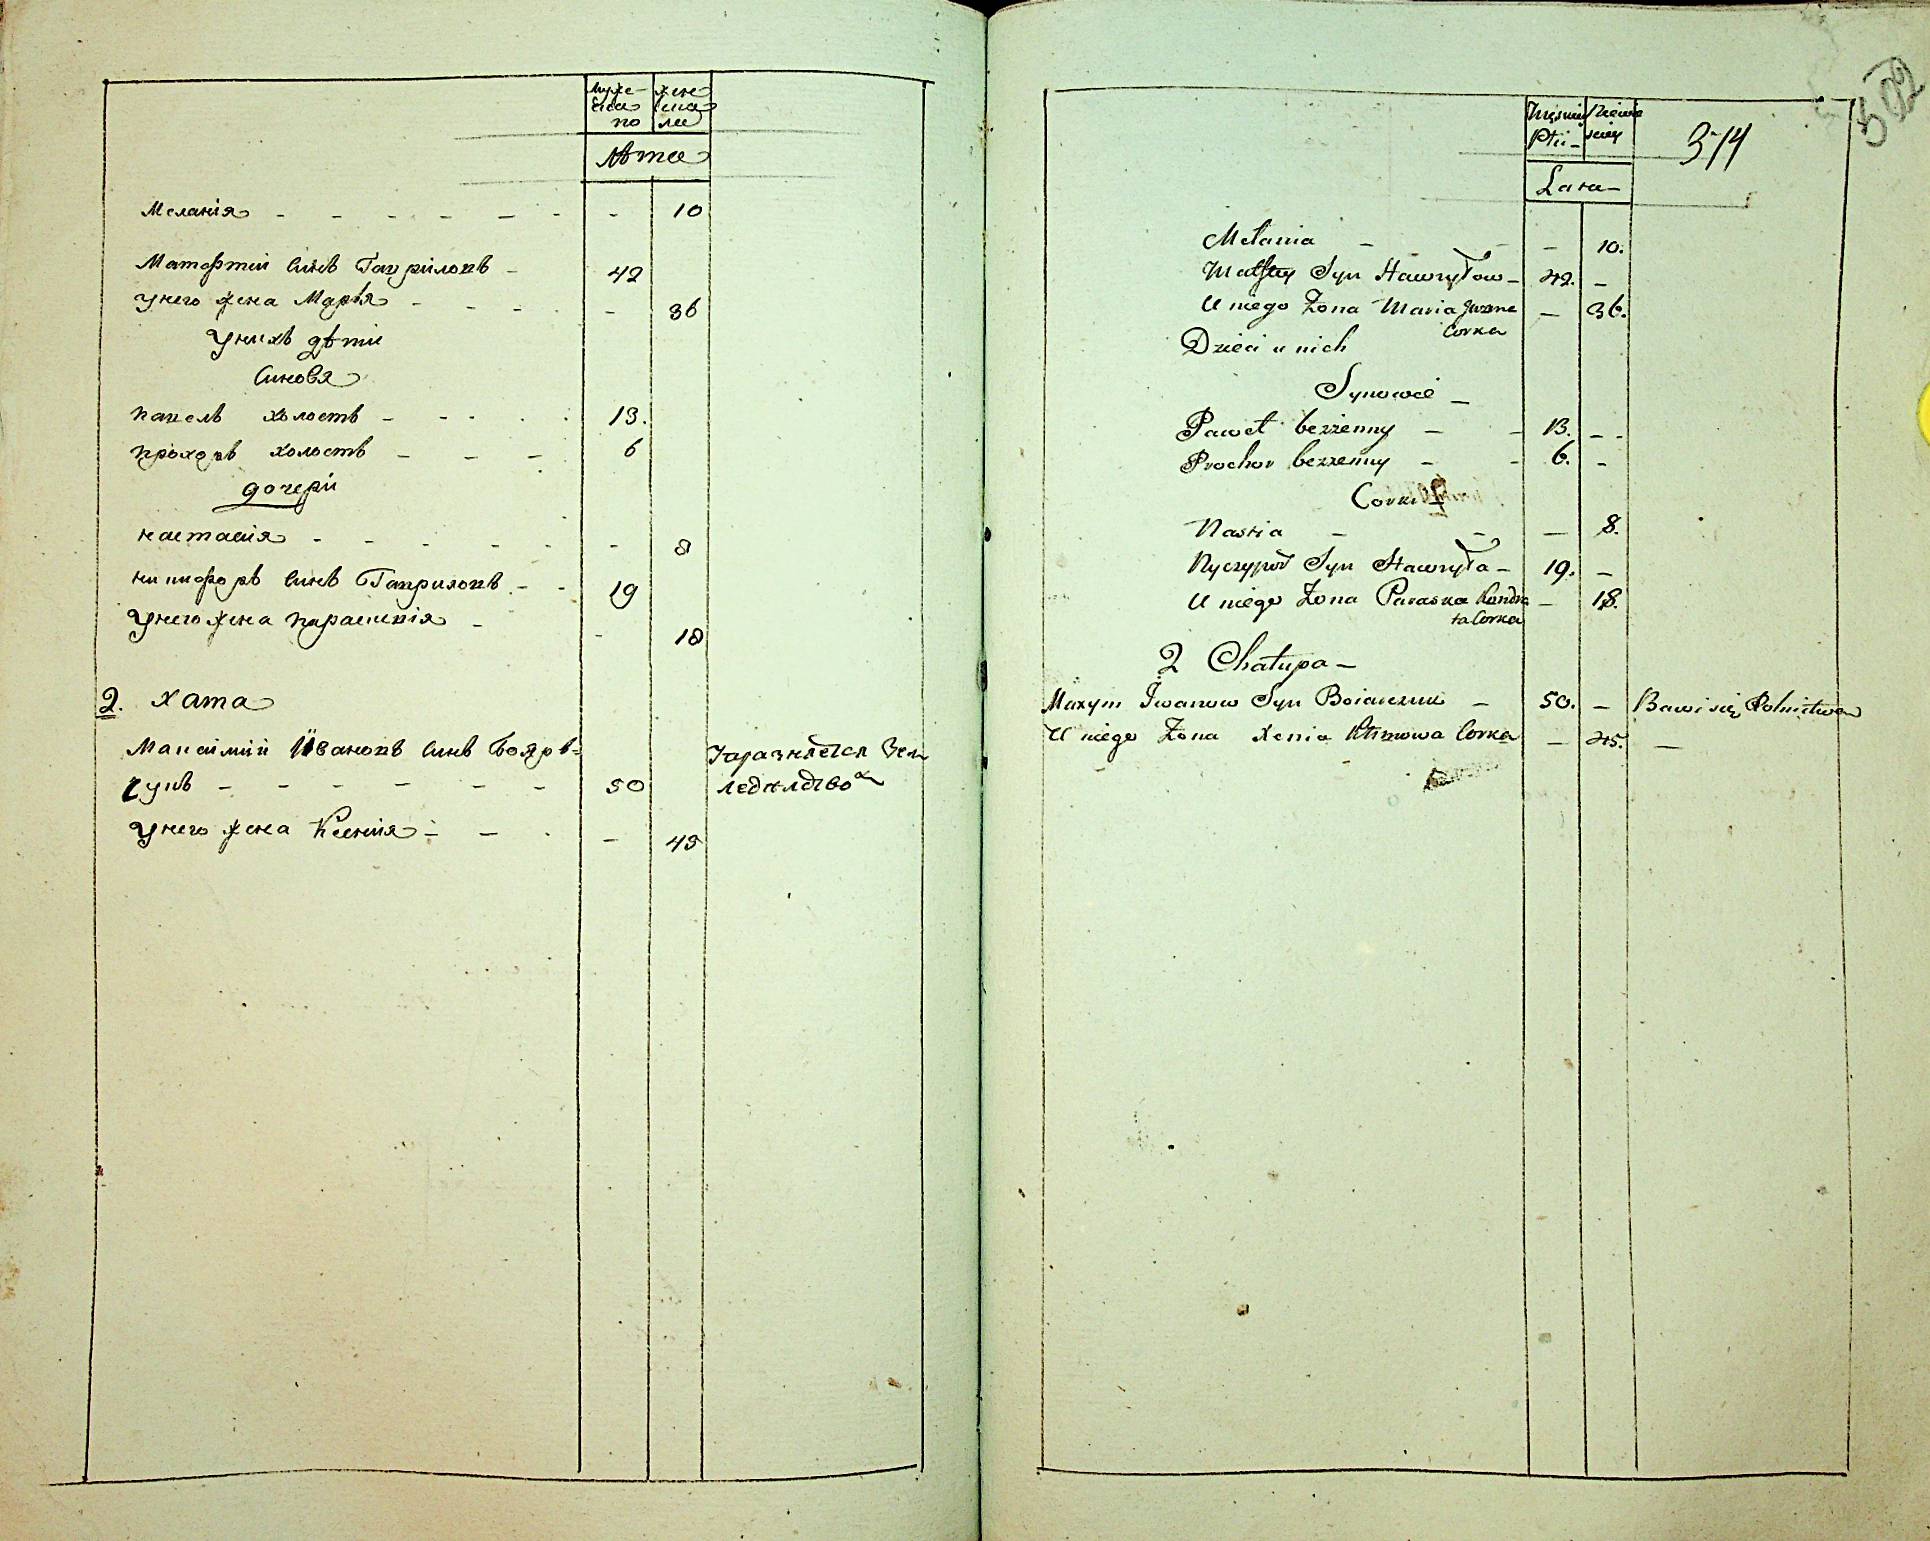 муже-
ска
по
жен-
ска
ли
лѣта
Меланія - - - - - - - 10
Матфтей синъ Гаврилопъ - 42
Унего жена Марія - - - - 36
Унихъ дѣти
Синовя
Павелъ холостъ - - - - 13.
Прохоръ холостъ - - - 6
дочери
настасия - - - - - - 8
никифоръ синъ Гаврилопъ - - 19
Унего жена Параскивія - - 18
2. хата
Максимий Ивановъ синъ Боярв=
чукъ - - - - - - 50
Унего жена Ксенiя - - - - 45
502
374
Męskiey
Płci -
Lata -
Melania - - - 10.
Syn Hawryłow - 42. -
U niego Żona Maria
Corka - 36.
Dzieci u nich
Synowie -
Paweł bezżenny - - 13. - -
Prochor bezżenny - - 6. -
Corki
Nastia - - - 8.
Nyczypor Syn Hawryła - 19. -
U niego Żona Paraska Kondra
ta Corka - 18.
2 Chałupa -
Maxym Iwanow Syn Boiarczuk - 50. - Bawi się Rolnictwem
U niego Żona Xenia Klimowa Corka - 45. -